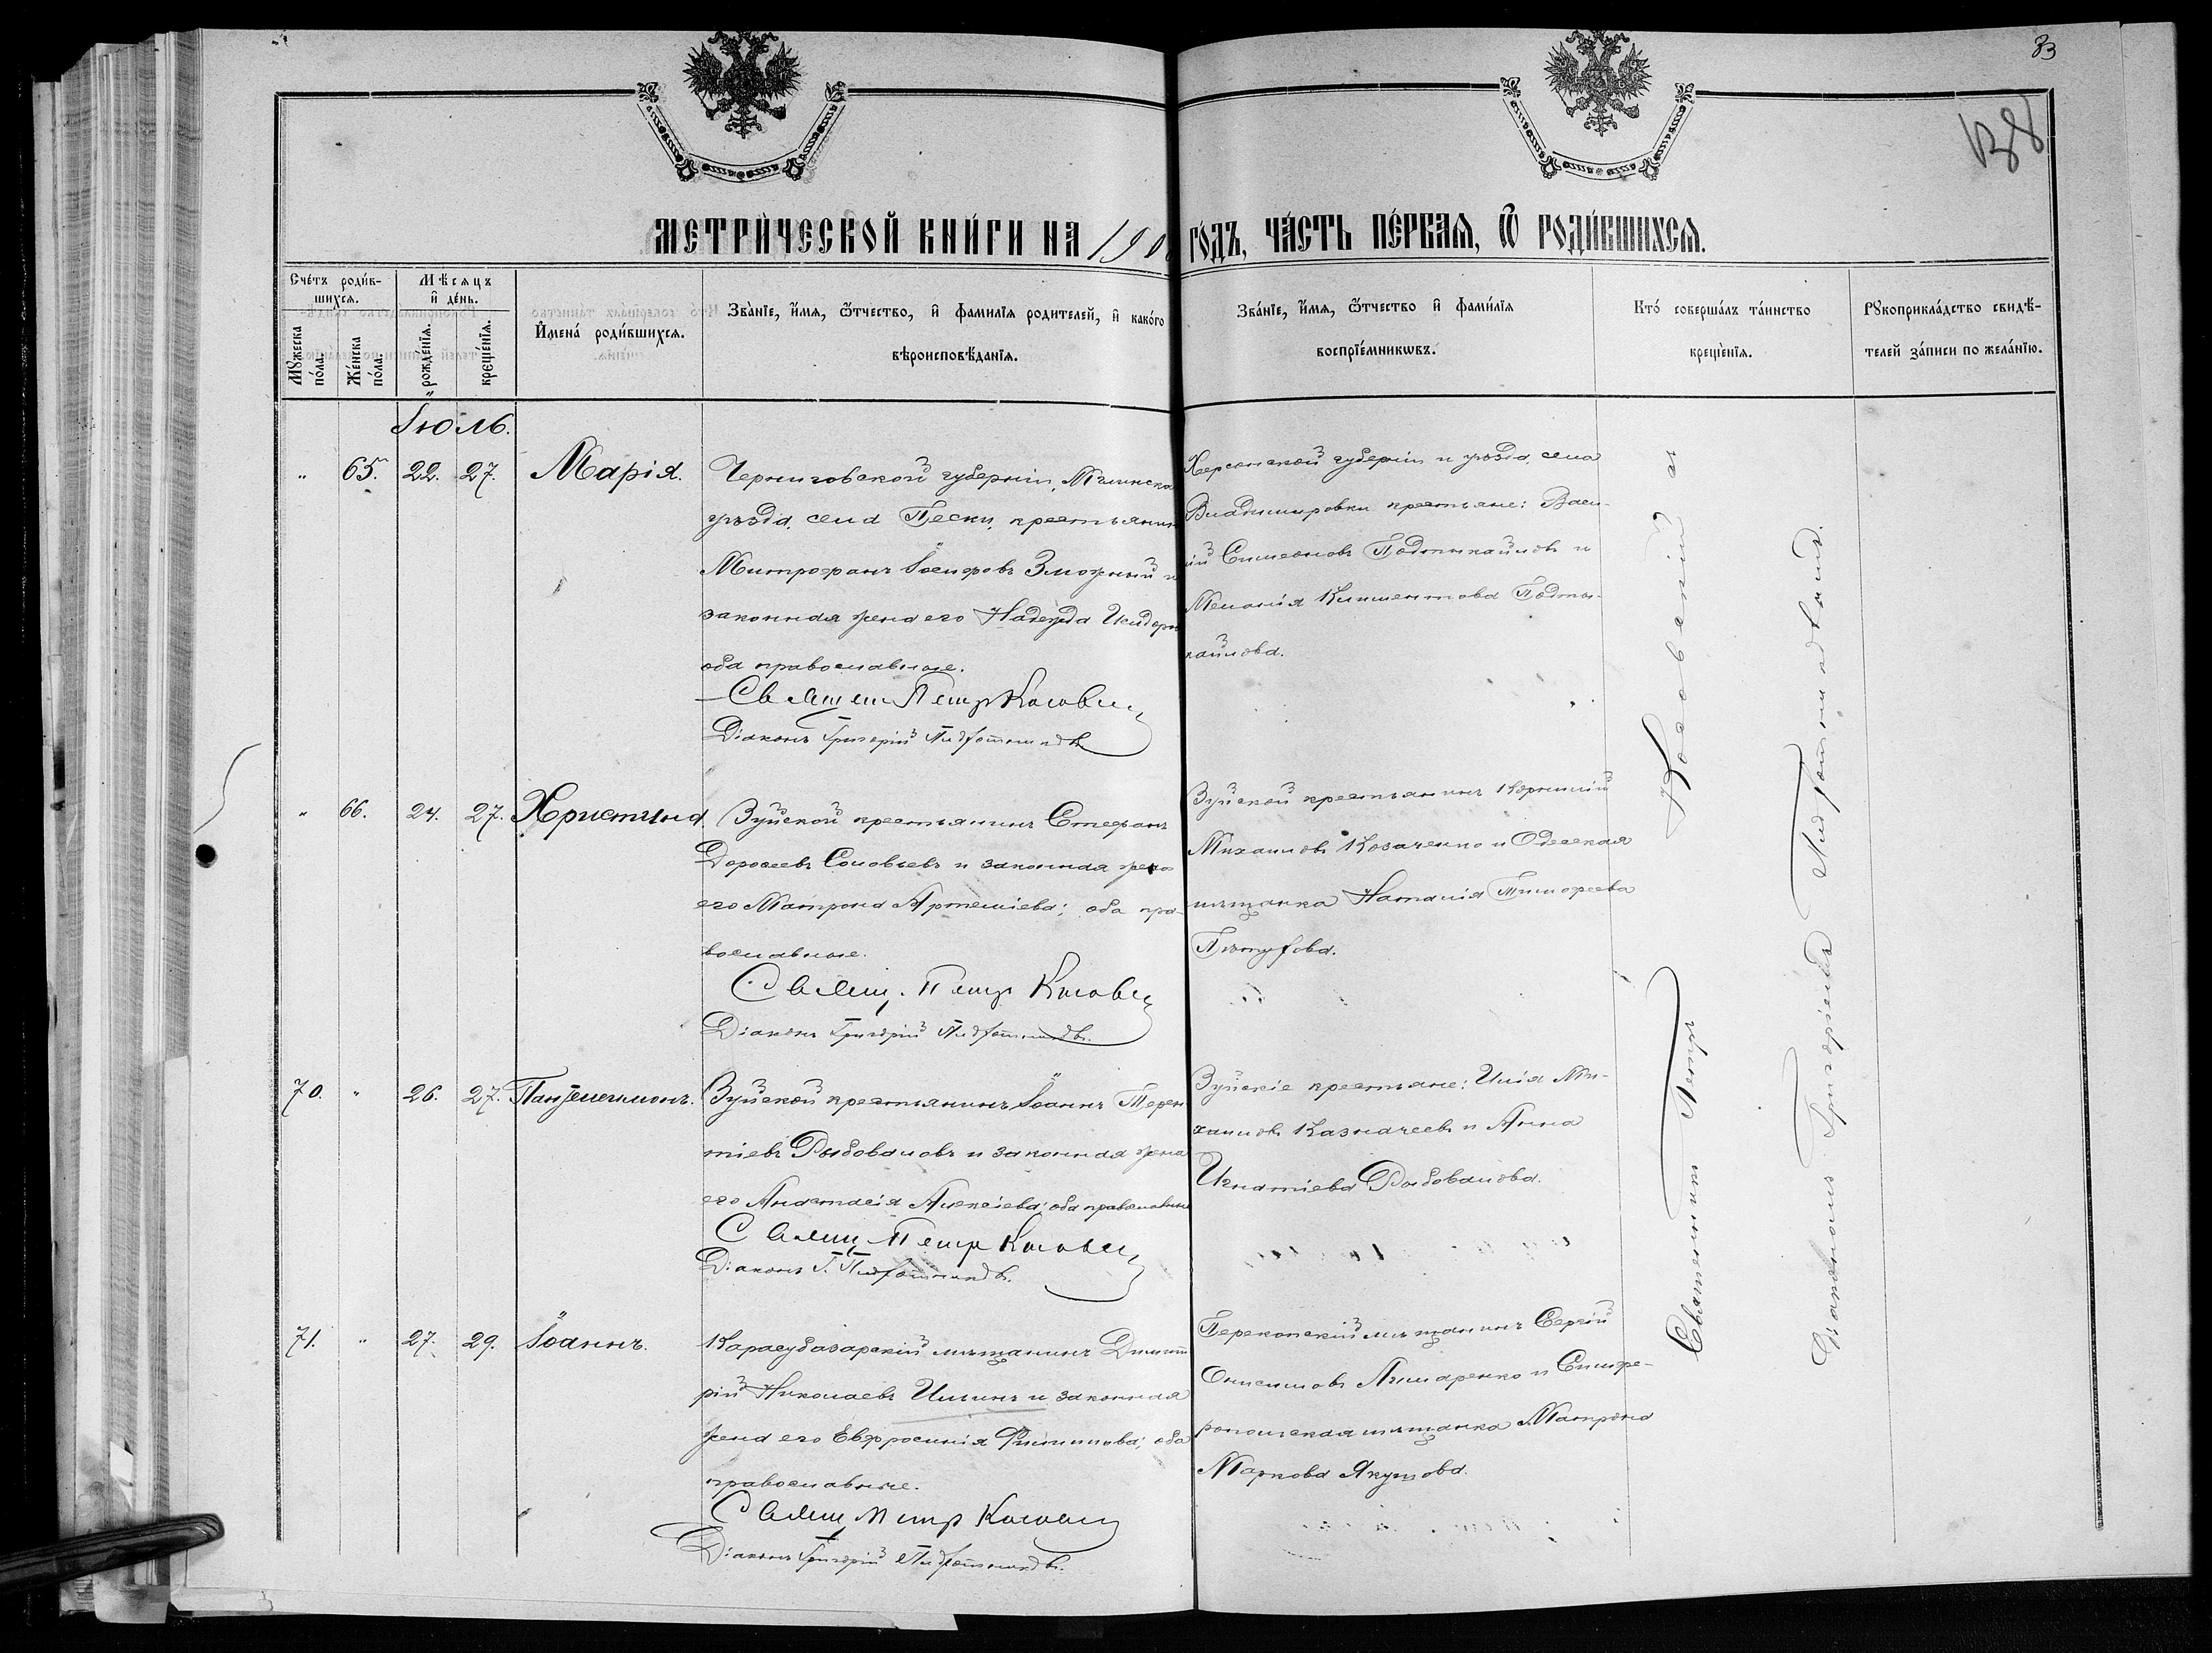 33
138
МЕТРИ́ЧЕСКОЙ КНИ́ГИ НА 190 ГО́ДЪ, ЧА́СТЬ ПЕ́РВАѦ, Ѿ РОДИ́ВШИХСѦ.
Сче́тъ роди́в-
шихсѧ.
Мꙋжеска по́ла.
Же́нска по́ла.
Мѣсѧцъ
и҆ де́нь.
рожде́нїѧ.
креще́нїѧ.
И҆мена́ роди́вшихсѧ.
Зва́нїе, и҆́мѧ, ѻ҆́тчество, и҆ фами́лїѧ родителей, и҆ како́го
вѣроисповѣ́данїѧ.
Зва́нїе, и҆́мѧ, ѻ҆́тчество и҆ фами́лїѧ
воспрїе́мникѡвъ.
Кто́ соверша́лъ та́инство
креще́нїѧ.
Рꙋкоприкла́дство свидѣ́-
телей за́писи по жела́нїю.
Іюль.
" 65. 22. 27. Марія.
Черниговской губерніи, Мглинска
уѣзда, села Пески, крестьянин
Митрофанъ Іосифовъ Зможный и
законная жена его Надежда Исидоро
оба православные.
Священ Петръ Косовск
Діаконъ Григорій
Херсонской губерніи и уѣзда, села
Владимировки крестьяне: Васи-
лій Симеоновъ Подтыкайловъ и
Меланія Климентова Подты-
кайлова.
" 66. 24. 27. Христина.
Зуйской крестьянинъ Стефанъ
Дорофеевъ Соловьевъ и законная жена
его Матрона Артеміева; оба пра-
вославные.
Свящ. Петръ Косовск
Діаконъ Григорій
Зуйской крестьянинъ Корнилій
Михаиловъ Козаченко и Одесская
мѣщанка Наталія Тимофеева
Пѣтухова.
70. " 26. 27. Пантелеимонъ.
Зуйской крестьянинъ Іоаннъ Терен-
тіевъ Рыбоваловъ и законная жена
его Анастасія Алексіева; оба православные
Свящ. Петръ Косовск
Діаконъ Г.
Зуйскіе крестьяне: Илія Ми-
хаиловъ Казначеевъ и Анна
Игнатіева Рыбовалова.
71. " 27. 29. Іоаннъ.
Карасубазарскій мѣщанинъ Димит
рій Николаевъ Ильинъ и законная
жена его Евфросинія Филиппова; оба
православные.
Свящ. Петръ Косовск
Діаконъ Григорій
Перекопскій мѣщанинъ Сергій
Онисимовъ Лымаренко и Симфе-
ропольская мѣщанка Матрона
Маркова Якушова.
Священникъ Петръ
Діакономъ Григоріемъ